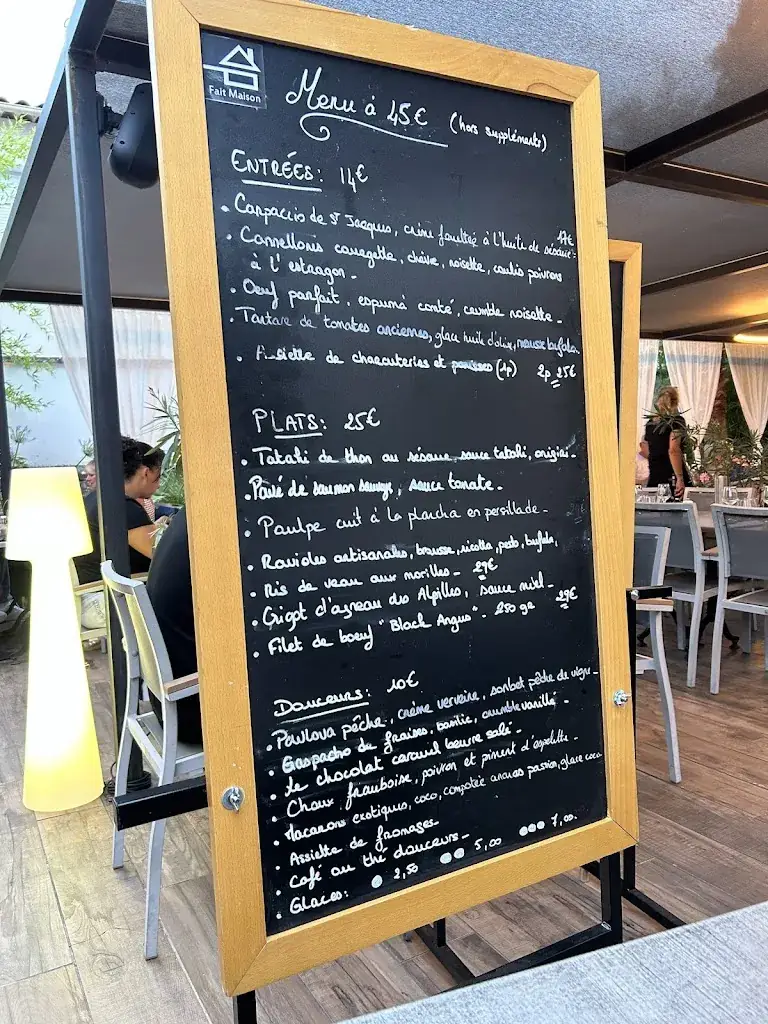 Fait Maison
Menu à 45€ (hors suppléments)
ENTRÉES: 14€
• Carpaccio de St Jacques, crème fouettée à l'huile de sésame - 17€
• Cannellonis courgette, chèvre, noisette, coulis poivrons
à l'estragon -
• Oeuf parfait, espuma comté, crumble noisette -
• Tartare de tomates anciennes, glace huile d'olive, mousse bufala -
• Assiette de charcuteries et (4p) 2p 25€
PLATS: 25€
• Tataki de thon au sésame sauce tataki,
• Pavé de saumon sauvage, sauce tomate -
• Poulpe cuit à la plancha en persillade -
• Ravioles artisanales, brousse, ricotta, pesto, bufala,
• Ris de veau aux morilles - 29€
• Gigot d'agneau des Alpilles, sauce miel -
• Filet de boeuf "Black Angus" - 250 gr 29€
DOUCEURS: 10€
• Pavlova pêche, crème verveine, sorbet pêche de vigne -
• Gaspacho de fraises, basilic, crumble vanillé -
• Le chocolat caramil beurre salé -
• Choux framboise, poivron et piment d'espelette -
• Macarons exotiques, coco, compotée ananas passion, glace coco
• Assiette de fromages -
• Café ou thé douceurs -
• Glaces: ● 2,50 ●● 5,00 ●●● 7,00